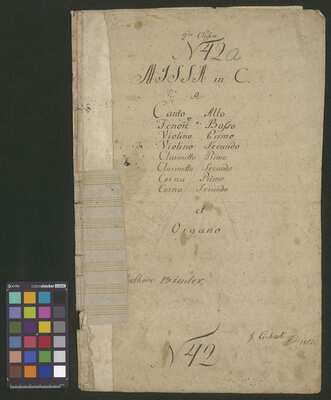 N 42a
MISSA in C.
a
Canto Alto
Tenore Basso
Violino Primo
Violino Secundo
Clarinetto Primo
Clarinetto Secundo
Corno Primo
Corno Secundo
et
Organo
N 42